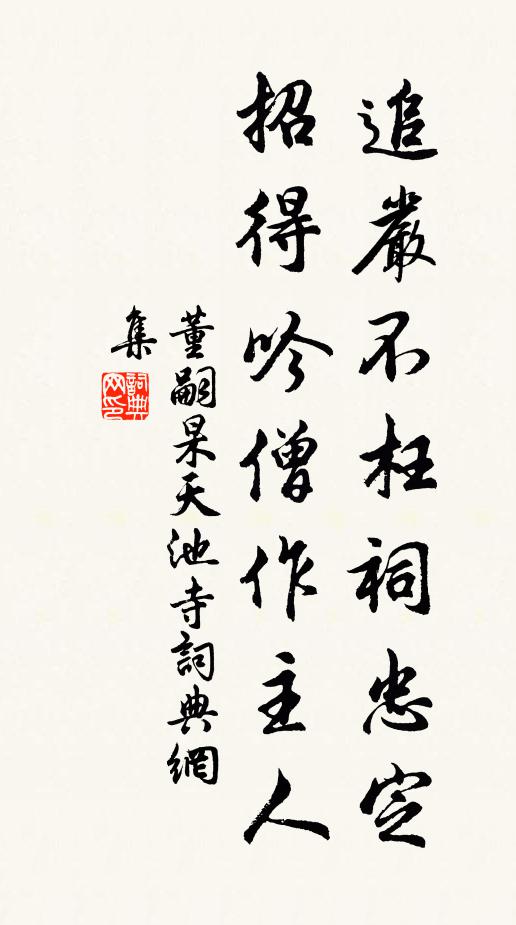 追嚴不枉祠忠定
招得吟僧作主人
董嗣杲天池寺詞典網
集
詞典
网印